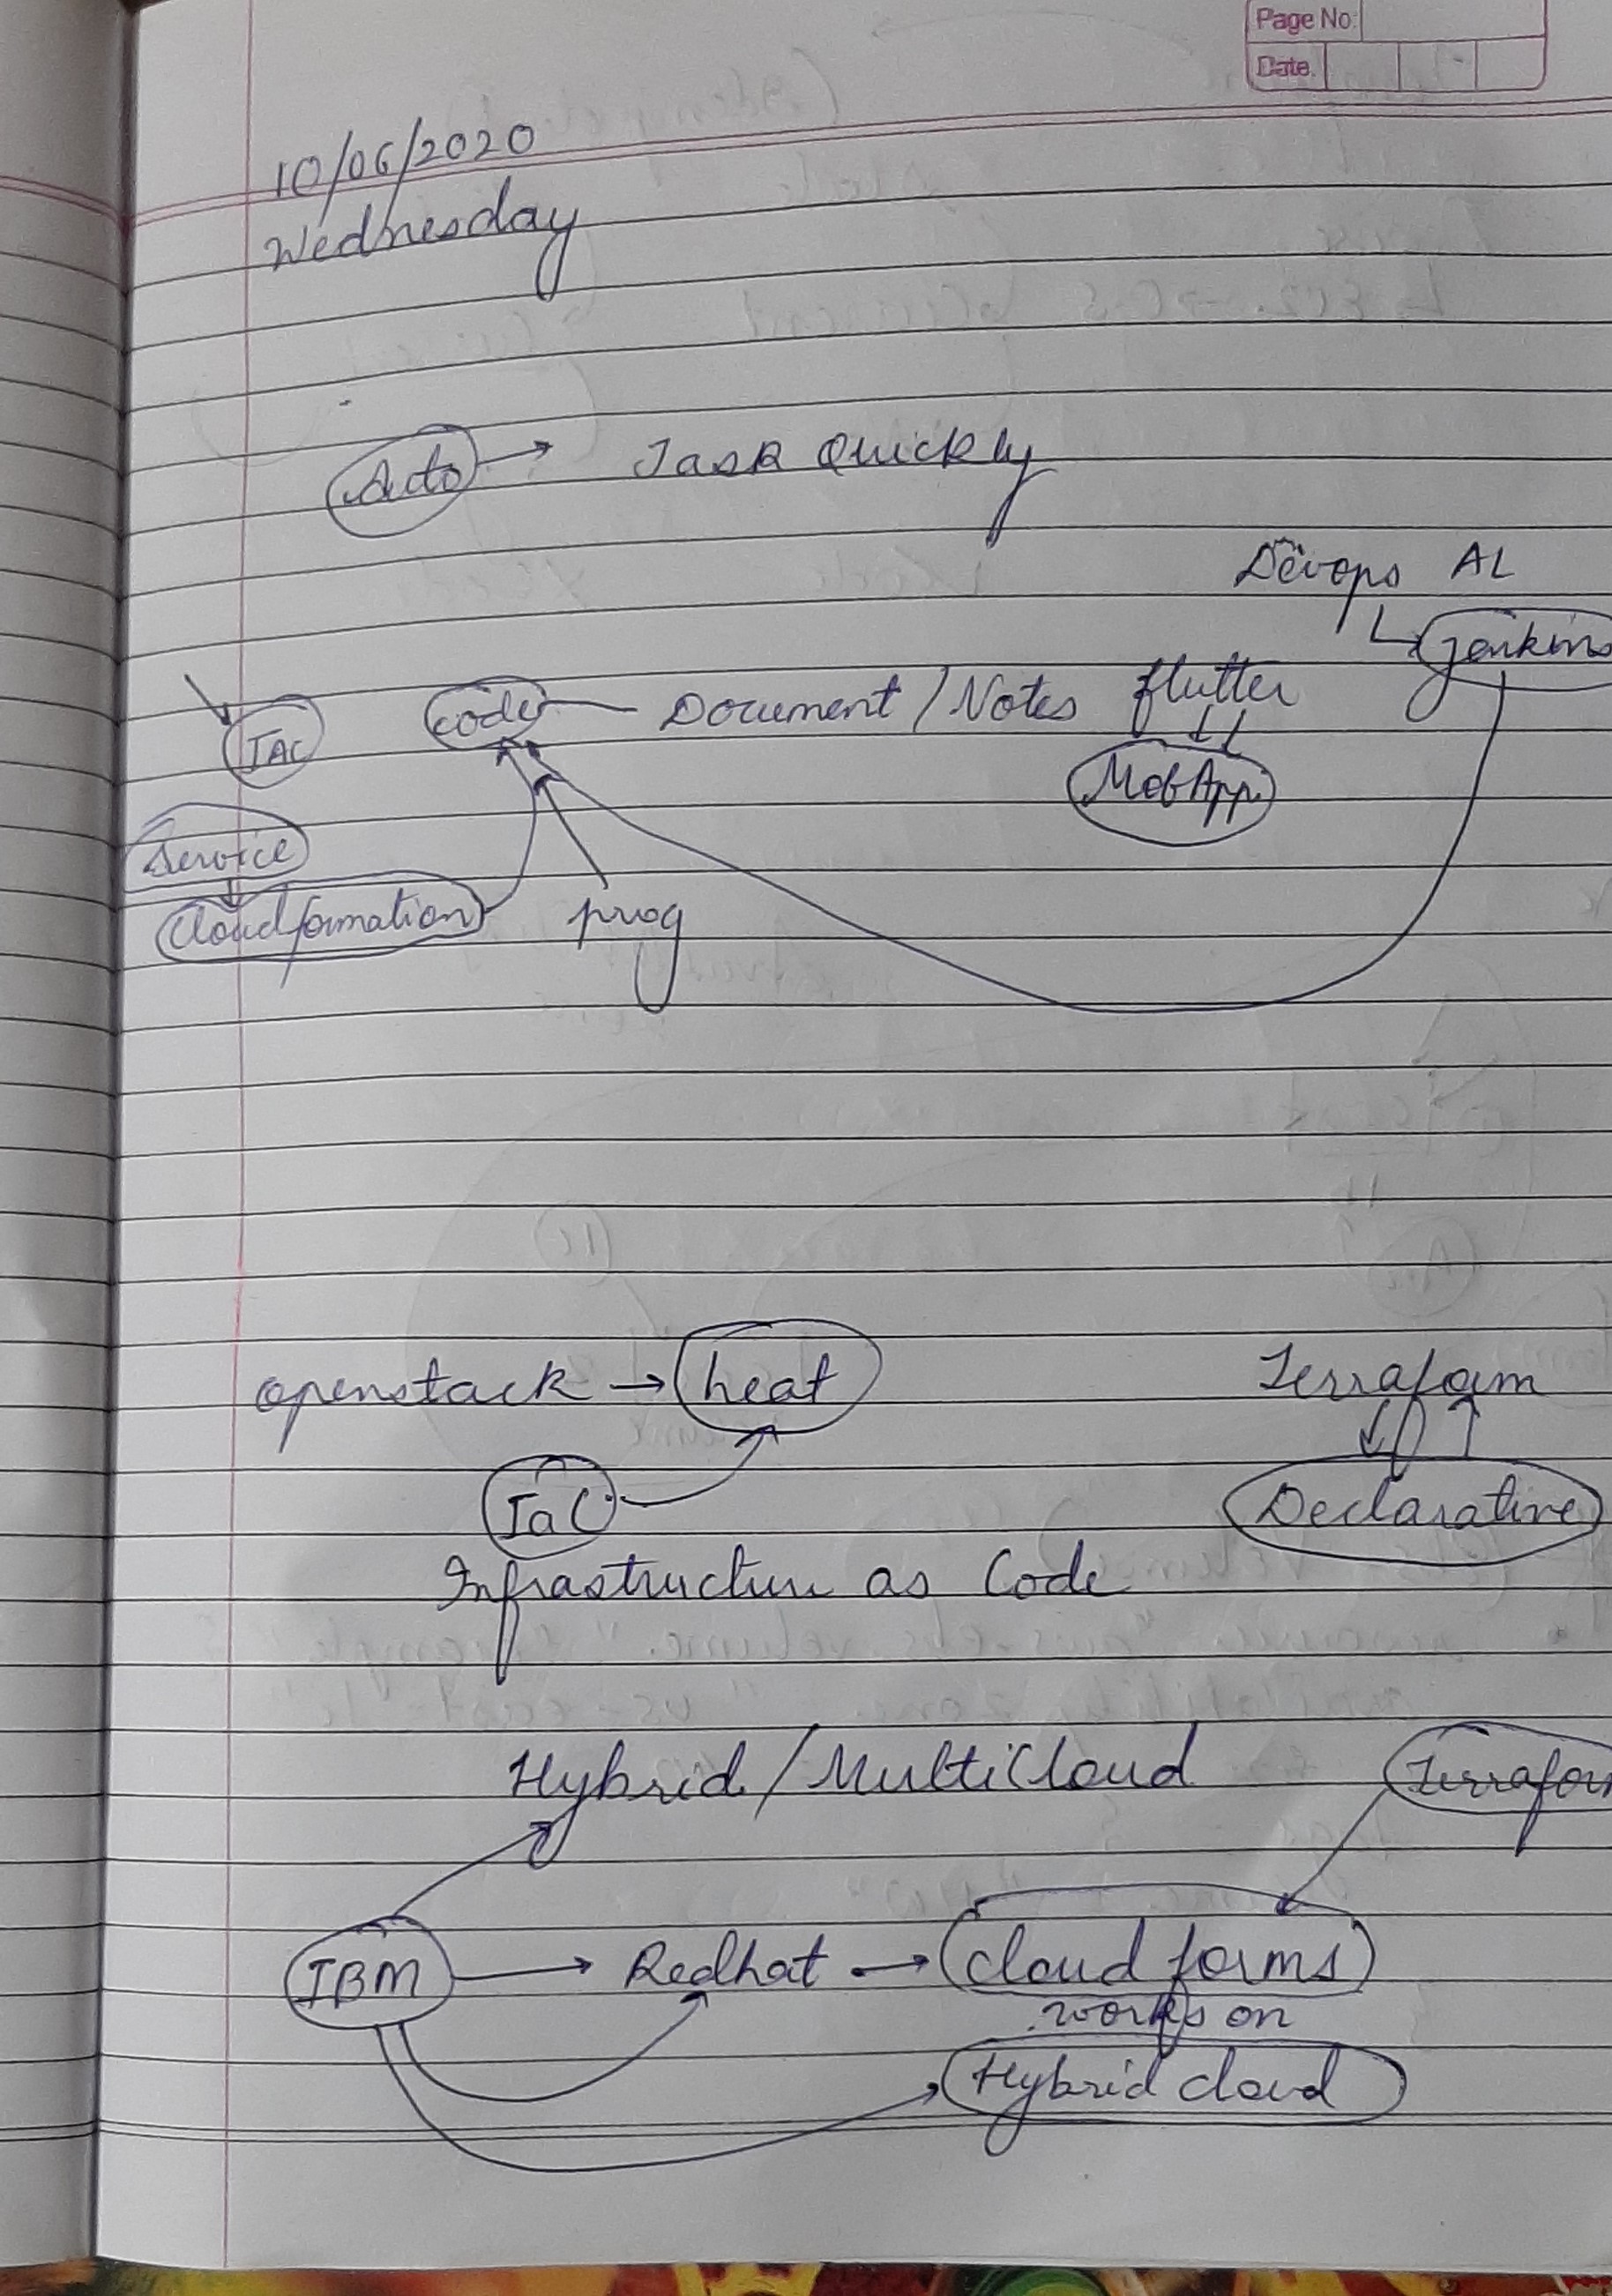 Page No:
Date.
10/06/2020
Wednesday
Auto → Task Quickly
Devops AL
Jenkins
IAC code Document / Notes flutter
Mob App.
Service
Cloudformation prog
openstack → heat Terraform
IaC Declarative
Infrastructure as Code
Hybrid / MultiCloud Terraform
IBM → Redhat → cloud forms
works on
Hybrid cloud